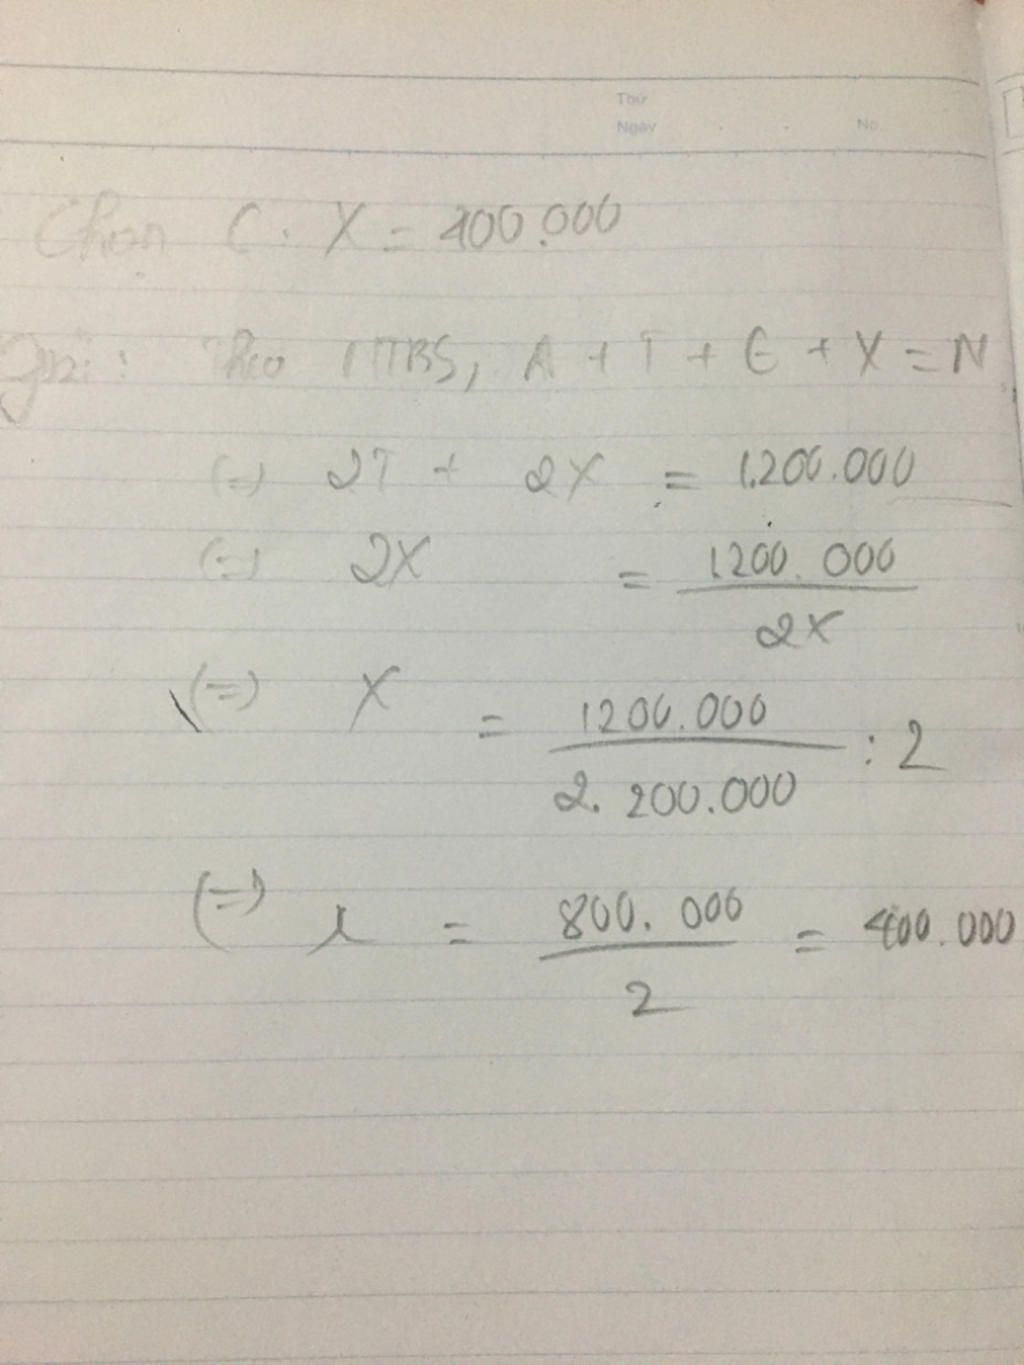 Thứ
Ngày No.
Chọn C. X = 400.000
Giải: Theo NTBS, A + T + G + X = N
(=) 2T + 2X = 1.200.000
(=) 2X = 1200.000
2X
(=) X = 1200.000 : 2
2. 200.000
(=) x = 800.000 = 400.000
2